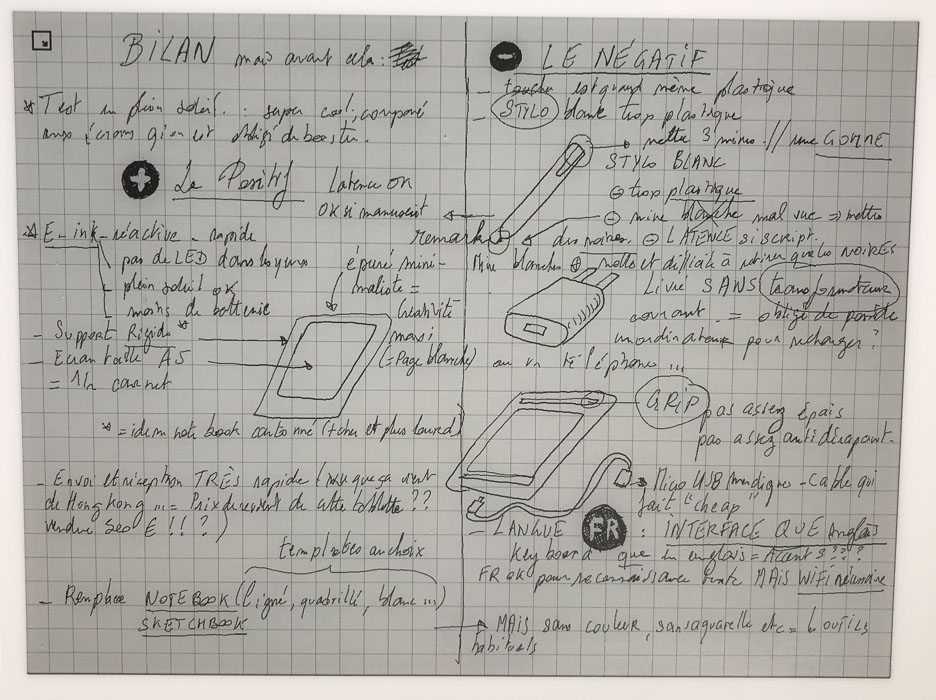 BILAN mais avant cela :
* Test en plein soleil : super cool, comparé
aux écrans qu'on est obligé de booster.
+ Le Positif
Latence OK
OK si manuscrit
* E-ink - réactive - rapide
pas de LED dans les yeux
plein soleil OK
moins de batterie
épuré mini-
maliste =
Créativité
maxi
(= Page blanche)
- Support Rigide *
- Ecran taille A5
= 1/2 carnet
* = idem note book cartonné (+ cher et plus lourd)
- Envoi et réception TRÈS rapide ( vu que ça vient
de Hong kong ... = Prix de revient de cette tablette ??
vendue 500 € !! ? )
templates au choix
- Remplace NOTEBOOK (ligné, quadrillé, blanc ...)
SKETCHBOOK
- LE NÉGATIF
- toucher est quand même plastique
- STYLO blanc trop plastique
mettre 3 mines // une GOMME
STYLO BLANC
⊖ trop plastique
⊖ mine blanche mal vue => mettre
des noires. ⊖ LATENCE si script.
remark
Mine blanches ⊕ nettes et difficile à retirer que les NOIRES
Livré SANS transformateur
courant = obligé de
un ordinateur pour recharger ?
ou un téléphone ...
GRIP pas assez épais
pas assez antidérapant.
Micro USB - Cable qui
fait "cheap"
- LANGUE FR : INTERFACE QUE Anglais
Key board que en anglais = Accents ????
FR OK pour reconnaissance texte MAIS WIFI nécessaire
MAIS sans couleur, sans aquarelle etc = outils
habituels